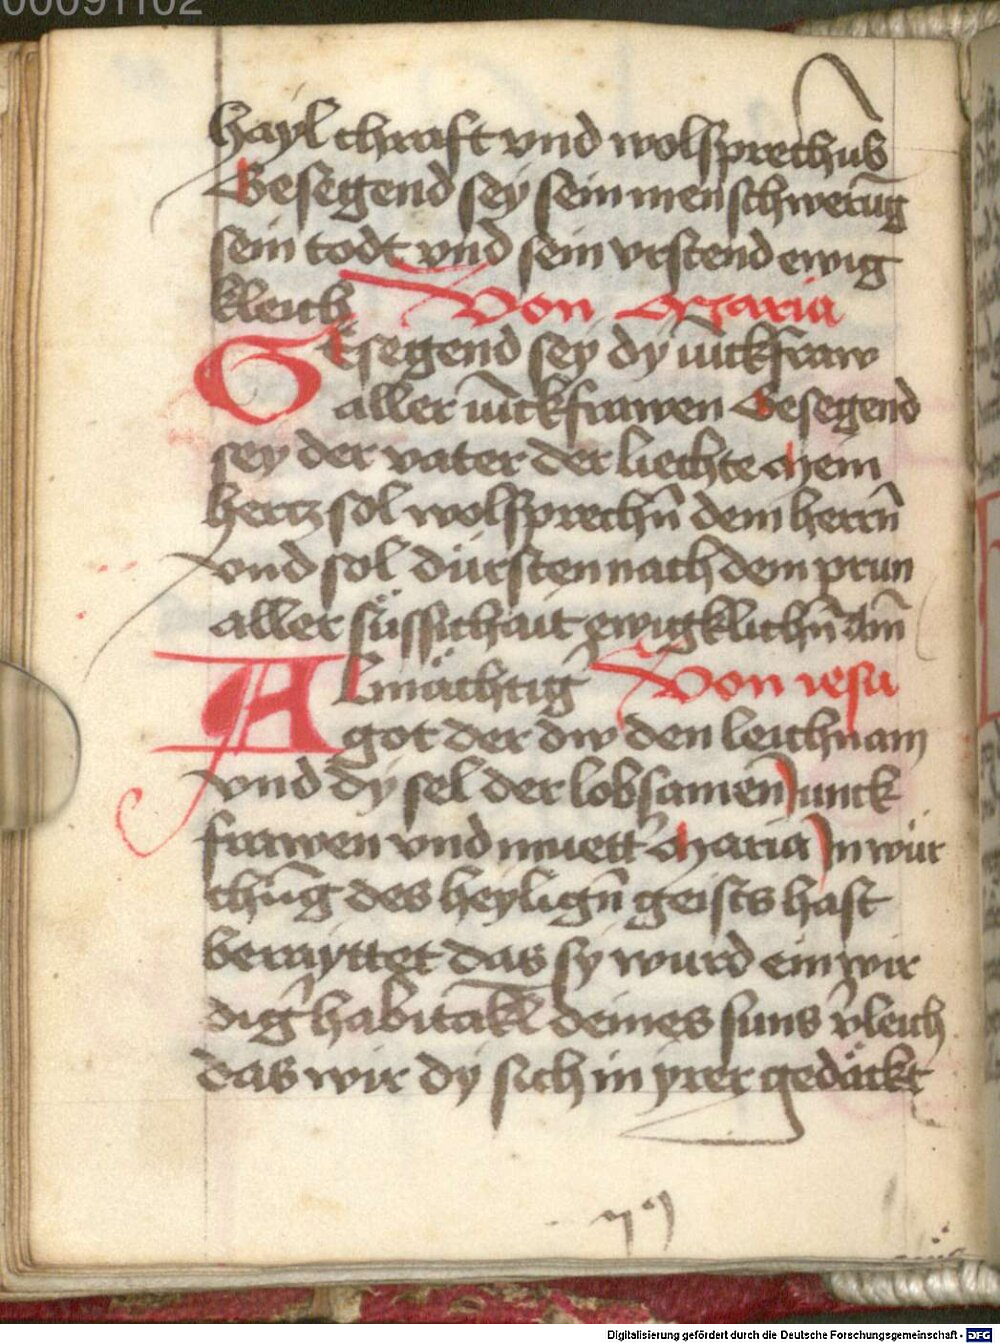 00091102
hayl chraft vnd wolsprechus
Gesegend sey sein menschwerūg
sein todt vnd sein vrstend ewig
kleich Von Maria
Gesegend sey dy iūckfraw
aller iūckfrawen Gesegend
sey der vater der liechte Mein
hertz sol wolsprechn̄ dem herrn̄
vnd sol dürsten nach dem prun
aller süssichait ewigklichn̄ Am̄
Almächtiḡ Von iesu
got der dw den leichnam
vnd dy sel der lobsamen Junck
frawen vnd muett̄ Maria Jn wür
chūg des heylign̄ geists hast
berayttet das sy wurd ein wir
diḡ habitakl deines suns v̄leich
das wir dy sich in yrer gedäckt
Digitalisierung gefördert durch die Deutsche Forschungsgemeinschaft - DFG